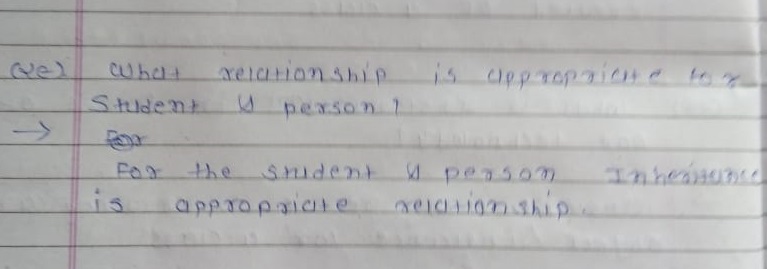 Que) What relationship is appropriate for
Student & person?
→
For the student & person Inheritance
is appropriate relationship.